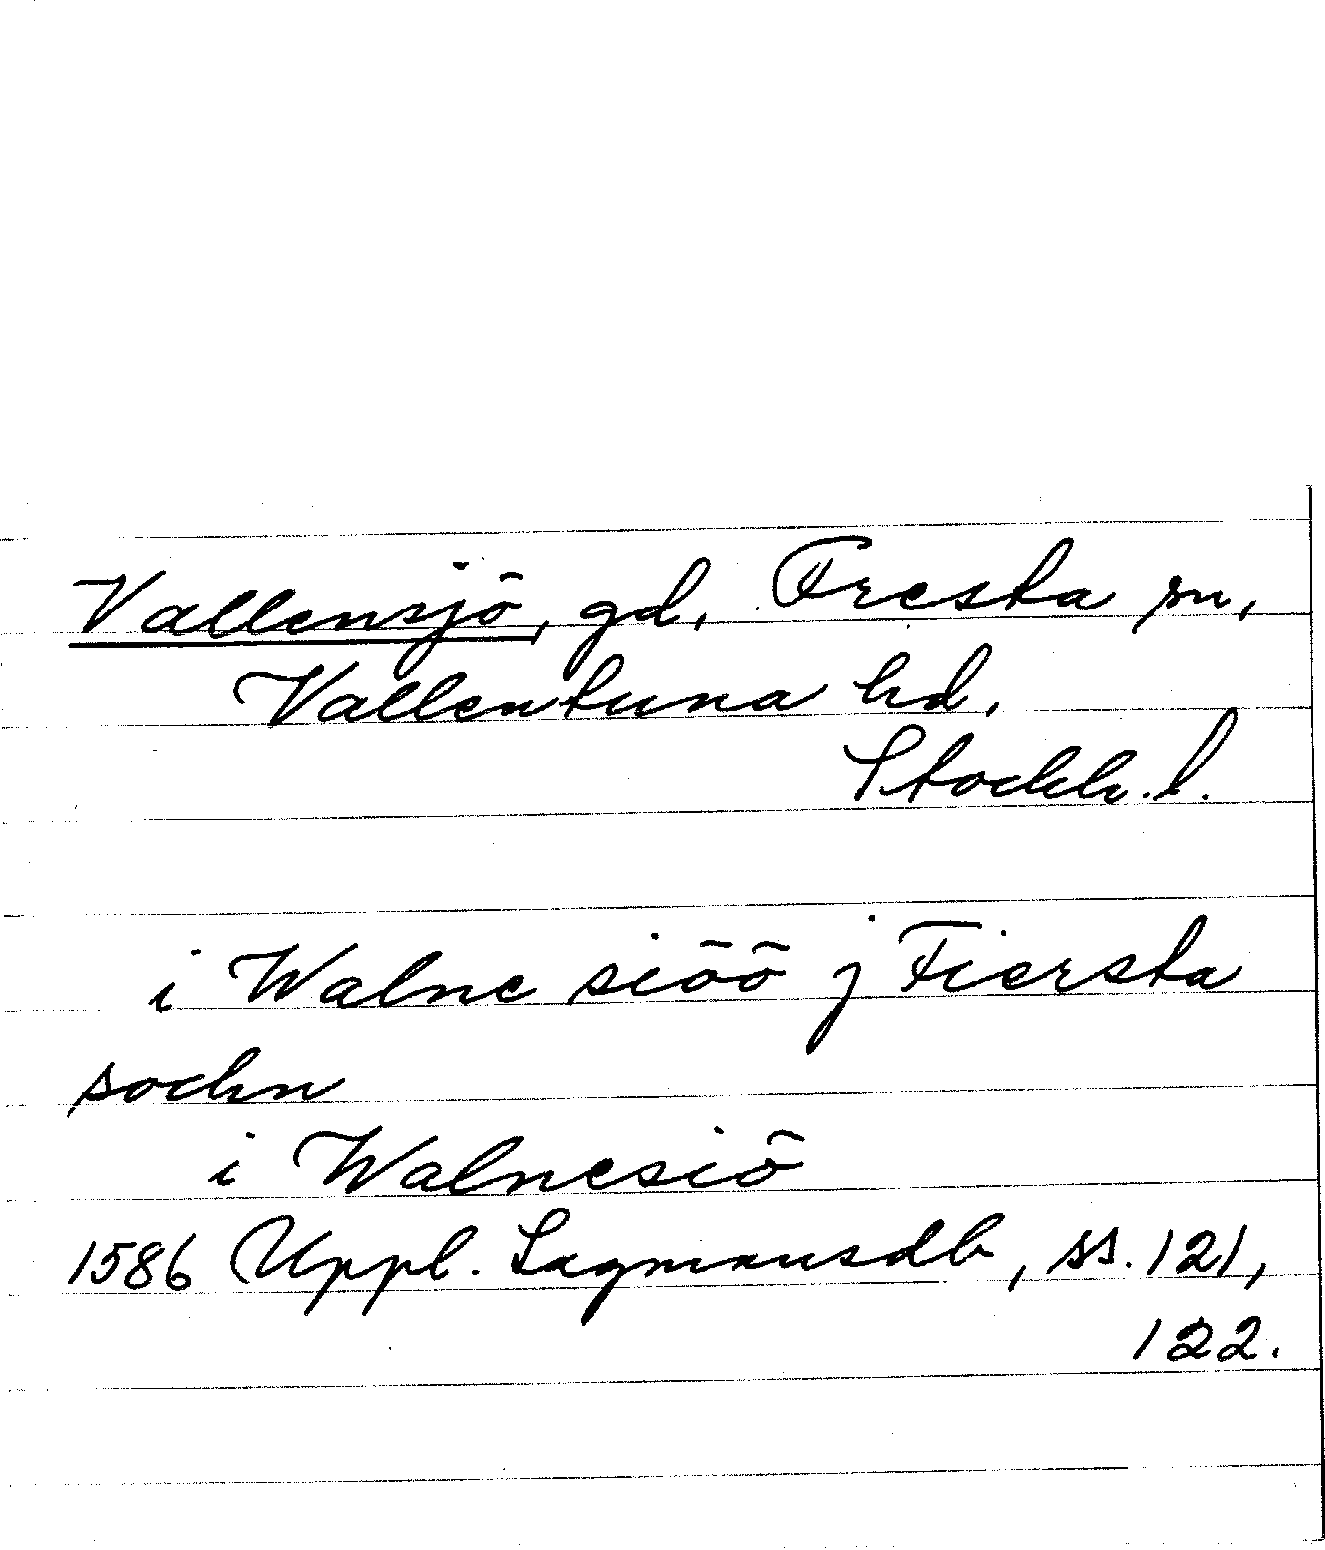 Vallensjö, gd, Fresta sn,
Vallentuna hd,
Stockh. l.
i Walne siöö j Fiersta
sochn
i Walnesiö
1586 Uppl. Lagmansdb, ss. 121,
122.